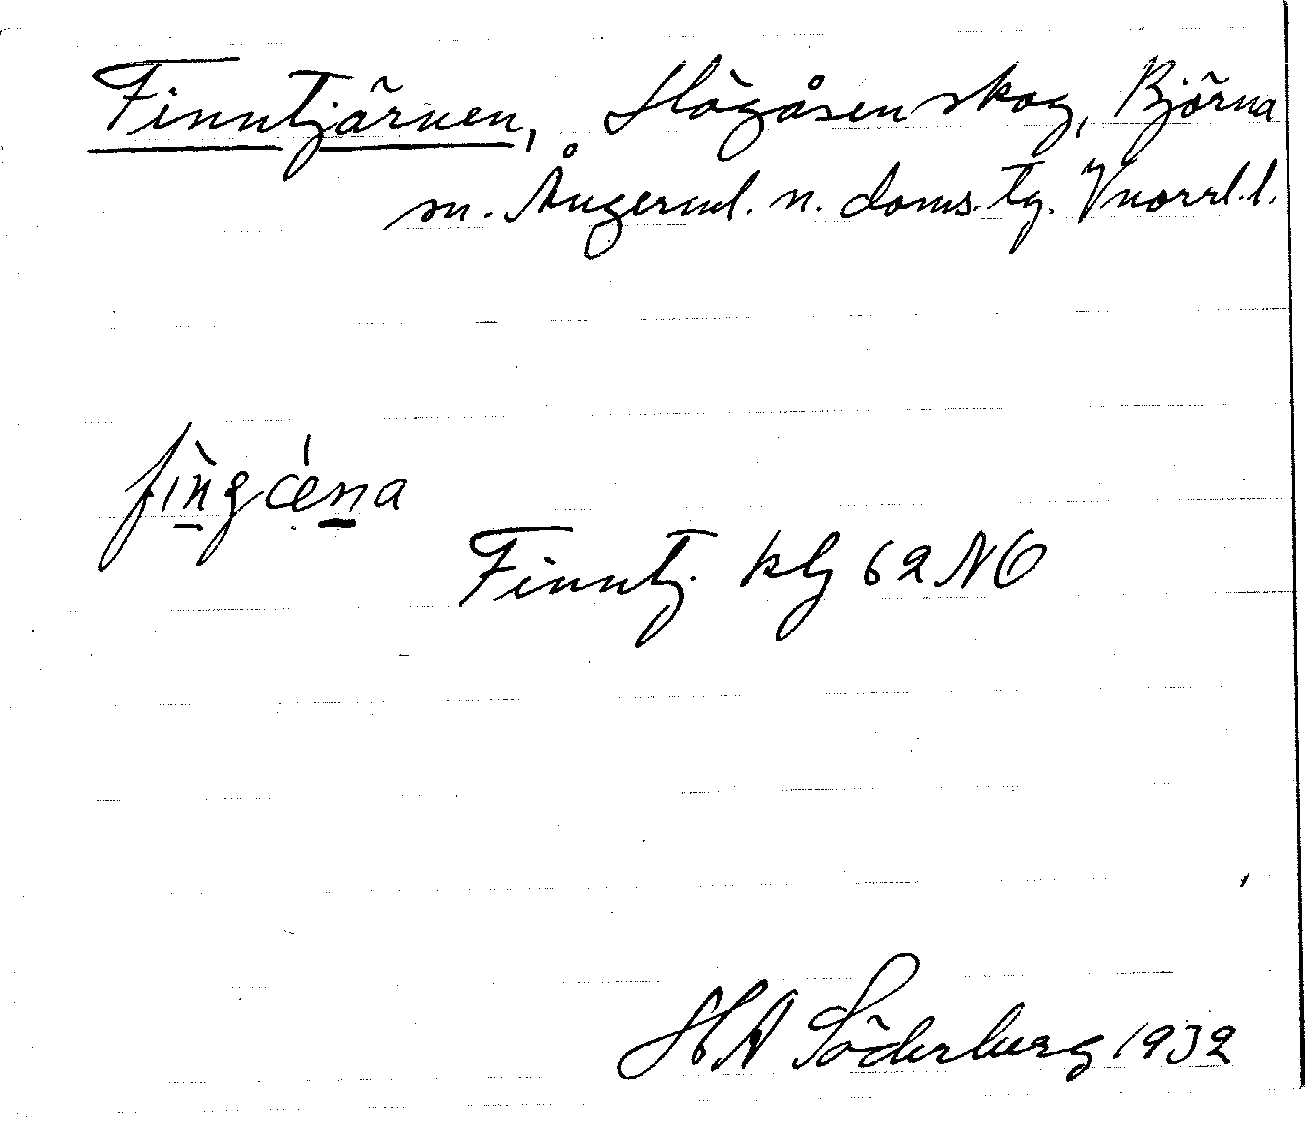 Finntjärnen, Högåsen skog, Björna
sn. Ångerml. n. doms. tg. Vnorrl. l.
Finntj. kbl 62 NO
H A Söderberg 1932